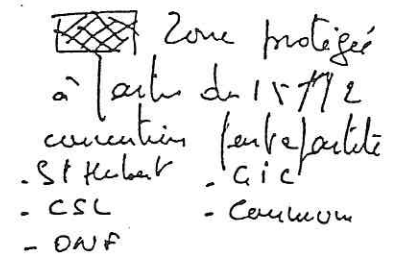 Zone protégée
à partir du 15
convention
- St Hubert - GIC
- CSL - Commun
- ONF